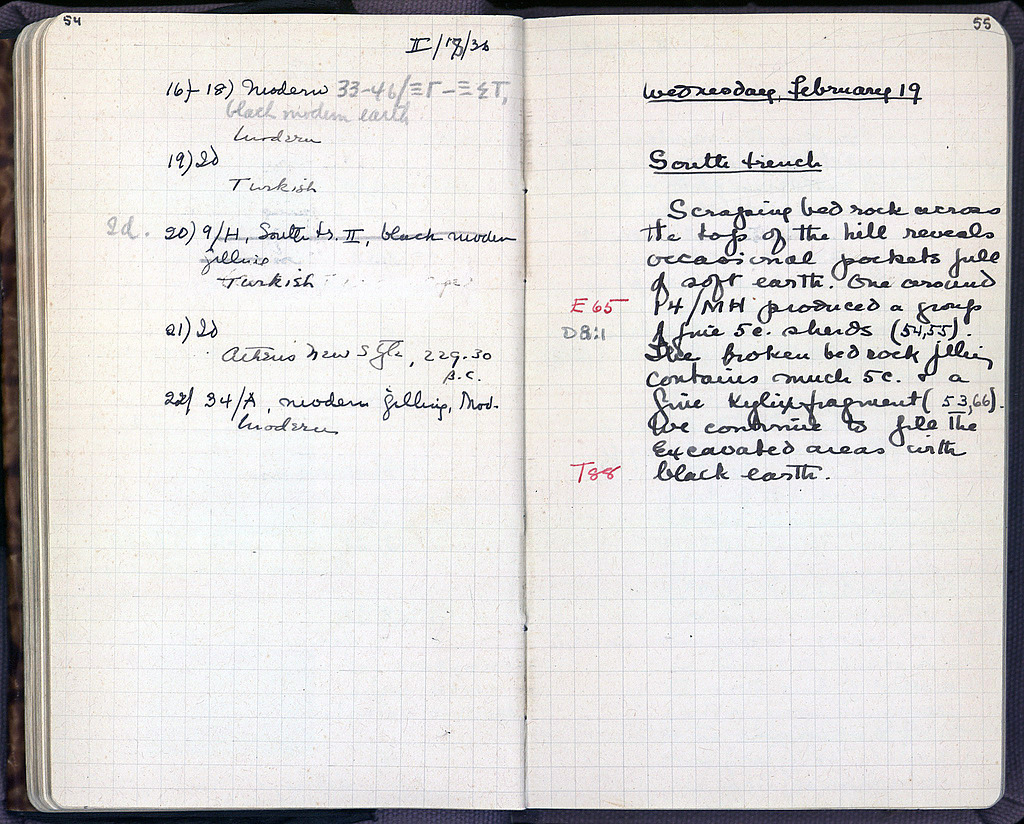 54
II/18/36
16)-18) Modern 33-46/ΞΓ-ΞΣΤ,
black modern earth
Modern
19) Id
Turkish
Id.
20) 9/H, South tr. II, black modern
filling
Turkish
21) Id
Athens New Style, 229-30
B.C.
22) 34/A, modern filling, Mod.
Modern
55
Wednesday, February 19
South trench
Scraping bed rock across
the top of the hill reveals
occasional pockets full
of soft earth. One around
E 65
14/MH produced a group
D8:1
of fine 5c. sherds (54,55).
The broken bedrock filling
contains much 5c. & a
fine Kylix fragment (53,66).
We continue to fill the
Excavated areas with
T88
black earth.